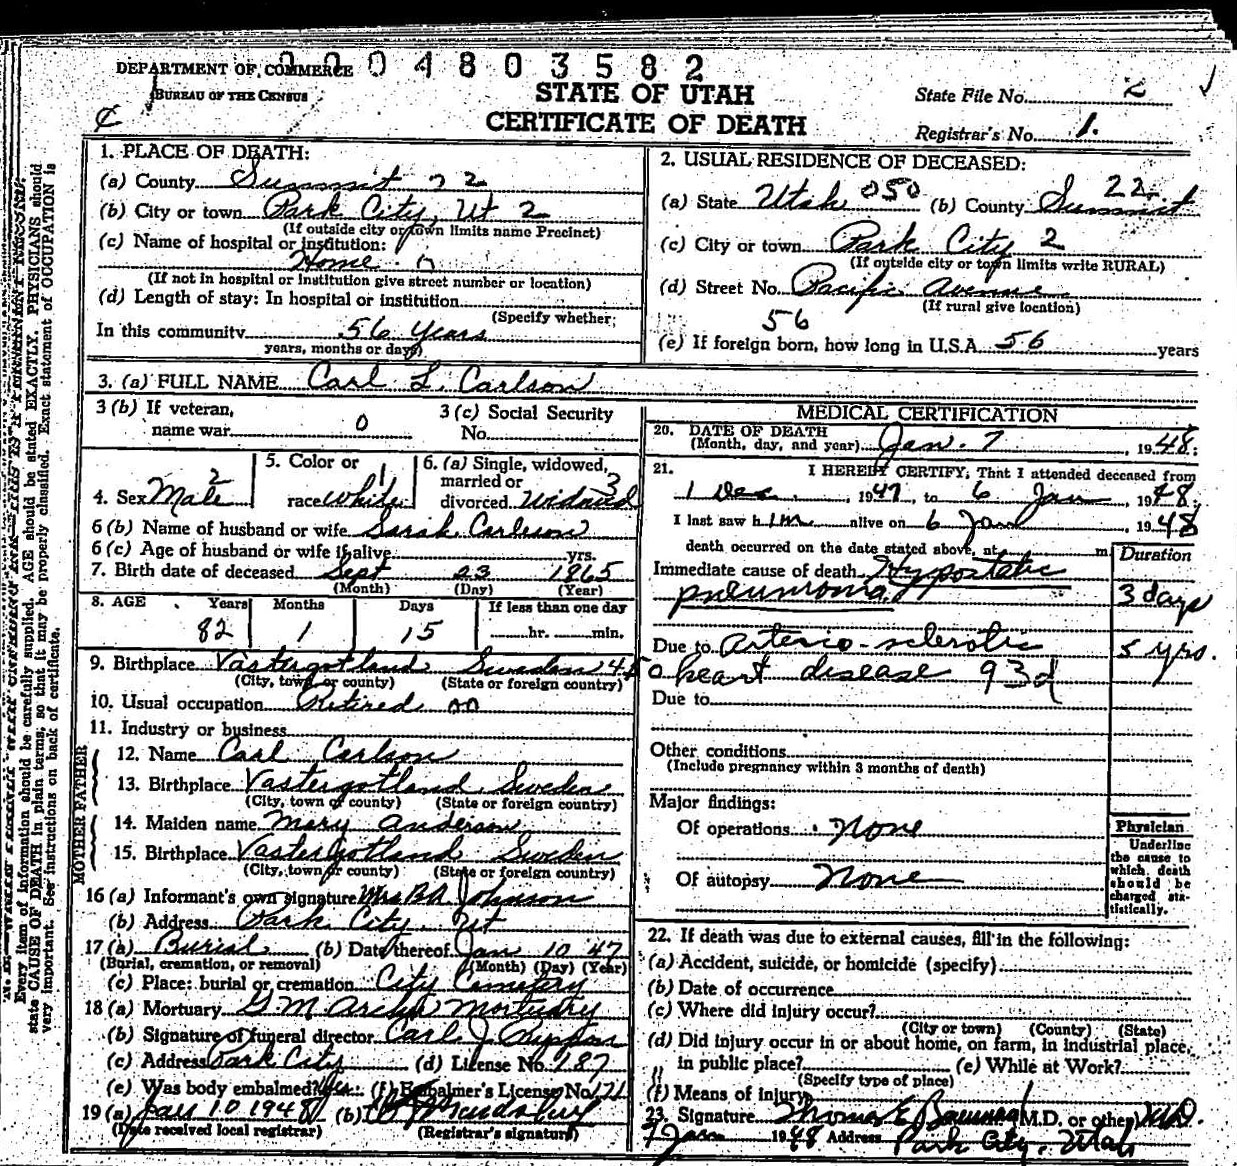 0004803582
DEPARTMENT OF COMMERCE
BUREAU OF THE CENSUS
STATE OF UTAH
CERTIFICATE OF DEATH
State File No. 2
Registrar's No. 1.
1. PLACE OF DEATH:
(a) County Summit 22
(b) City or town Park City, Ut 2
(If outside city or town limits name Precinct)
(c) Name of hospital or institution:
Home
(If not in hospital or institution give street number or location)
(d) Length of stay: In hospital or institution
(Specify whether;
In this community 56 years
years, months or days)
2. USUAL RESIDENCE OF DECEASED:
(a) State Utah 050 (b) County Summit 22
(c) City or town Park City 2
(If outside city or town limits write RURAL)
(d) Street No. Pacific Avenue
(If rural give location)
56
(e) If foreign born, how long in U.S.A. 56 years
3. (a) FULL NAME Carl L. Carlson
3 (b) If veteran, name war 0
3 (c) Social Security No.
4. Sex Male 2
5. Color or race White 1
6. (a) Single, widowed, married or divorced Widowed 3
6 (b) Name of husband or wife Sarah Carlson
6 (c) Age of husband or wife if alive yrs.
7. Birth date of deceased Sept 23 1865
(Month) (Day) (Year)
8. AGE Years Months Days If less than one day
82 1 15 hr. min.
9. Birthplace Vastergotland Sweden 450
(City, town or county) (State or foreign country)
10. Usual occupation Retired 00
11. Industry or business
FATHER
12. Name Carl Carlson
13. Birthplace Vastergotland Sweden
(City, town or county) (State or foreign country)
MOTHER
14. Maiden name Mary Anderson
15. Birthplace Vastergotland Sweden
(City, town or county) (State or foreign country)
16 (a) Informant's own signature Mrs BA Johnson
(b) Address Park City, Ut
17 (a) Burial (b) Date thereof Jan 10 47
(Burial, cremation, or removal) (Month) (Day) (Year)
(c) Place: burial or cremation City Cemetery
18 (a) Mortuary G. M. Archer Mortuary
(b) Signature of funeral director Carl J.
(c) Address Park City (d) License No. 187
(e) Was body embalmed? Yes: (f) Embalmer's License No. 171
19 (a) Jan 10 1948 (b)
(Date received local registrar) (Registrar's signature)
MEDICAL CERTIFICATION
20. DATE OF DEATH
(Month, day, and year) Jan. 7, 1948:
21. I HEREBY CERTIFY, That I attended deceased from
1 Dec, 1947, to 6 Jan, 1948.
I last saw him alive on 6 Jan, 1948
death occurred on the date stated above, at m.
Duration
Immediate cause of death Hypostatic
pneumonia 3 days
Due to Arterio-sclerotic 5 yrs.
heart disease 93d
Due to
Other conditions
(Include pregnancy within 3 months of death)
Major findings:
Of operations None
Of autopsy None
Physician
Underline
the cause to
which death
should be
charged sta-
tistically.
22. If death was due to external causes, fill in the following:
(a) Accident, suicide, or homicide (specify)
(b) Date of occurrence
(c) Where did injury occur?
(City or town) (County) (State)
(d) Did injury occur in or about home, on farm, in industrial place,
in public place? (e) While at Work?
(Specify type of place)
(f) Means of injury
23. Signature Thomas E (M.D. or other) M.D.
7 Jan 1948 Address Park City, Utah
Every item of information should be carefully supplied. AGE should be stated EXACTLY. PHYSICIANS should
state CAUSE OF DEATH in plain terms, so that it may be properly classified. Exact statement of OCCUPATION is
very important. See instructions on back of certificate.